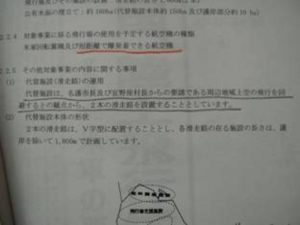 公有水面の埋立て：約160ha（代替施設本体約150ha及び護岸部分約10ha）
3.2.4 対象事業に係る飛行場の使用を予定する航空機の種類
米軍回転翼機及び短距離で離発着できる航空機
3.2.5 その他対象事業の内容に関する事項
(1) 代替施設（滑走路）の運用
代替施設は、名護市長及び宜野座村長からの要請である周辺地域上空の飛行を回
避するとの観点から、2本の滑走路を設置することとしています。
(2) 代替施設本体の形状
2本の滑走路は、V字型に配置することとし、各滑走路の在る施設の長さは、護
岸を除いて1,800mで計画しています。
飛行場支援施設